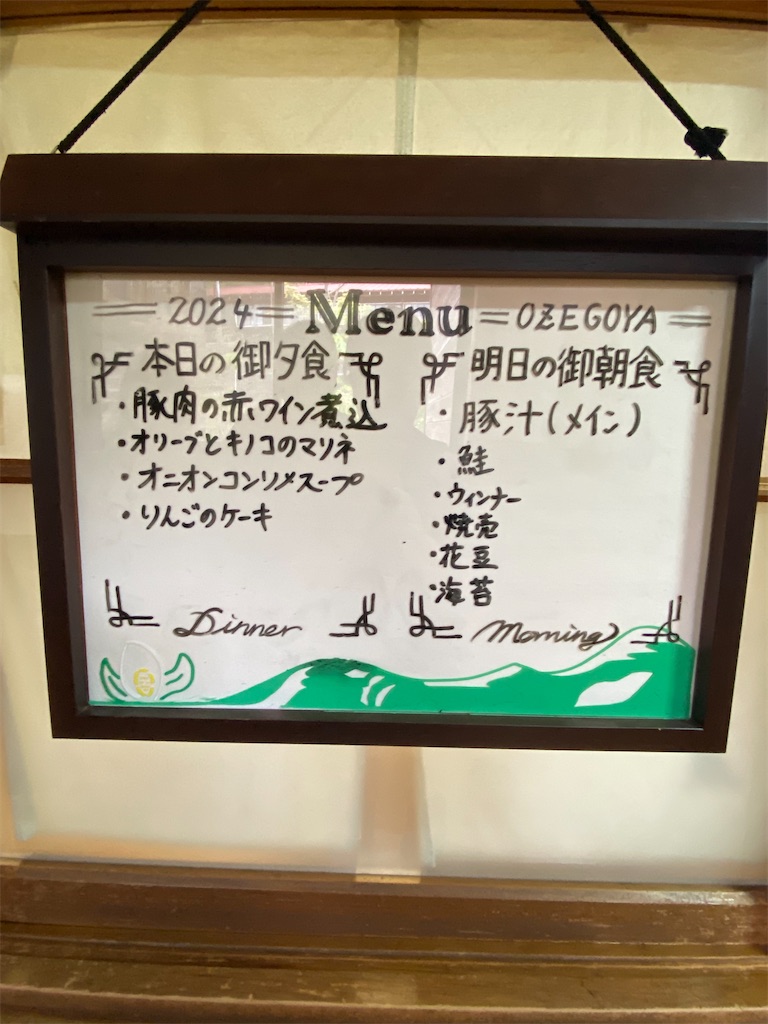 2024 Menu OZEGOYA
本日の御夕食
・豚肉の赤ワイン煮込
・オリーブとキノコのマリネ
・オニオンコンソメスープ
・りんごのケーキ
Dinner
明日の御朝食
・豚汁(メイン)
・鮭
・ウィンナー
・焼売
・花豆
・海苔
Morning